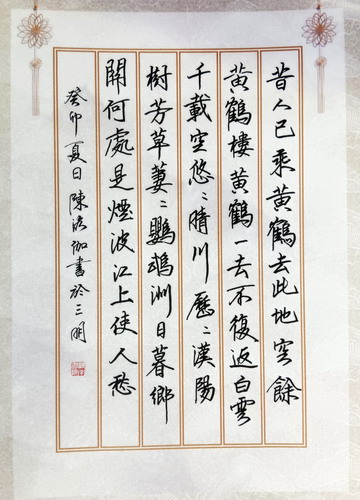 昔人已乘黃鶴去此地空餘
黃鶴樓黃鶴一去不復返白雲
千載空悠〻晴川歷〻漢陽
樹芳草萋〻鸚鵡洲日暮鄉
關何處是煙波江上使人愁
癸卯夏日陳洛伽書於三明